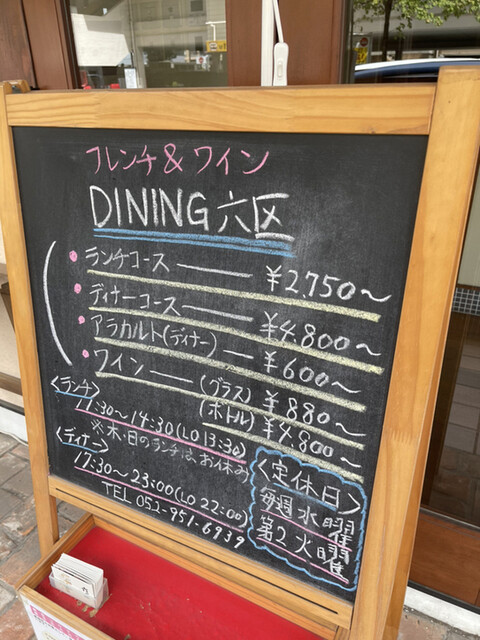 フレンチ&ワイン
DINING 六区
・ランチコース ―― ¥2.750〜
・ディナーコース ―― ¥4.800〜
・アラカルト(ディナー) ― ¥600〜
・ワイン ―― (グラス) ¥880〜
(ボトル) ¥4.800〜
<ランチ>
11:30〜14:30(LO 13:30)
※木・日のランチは、お休み
<ディナー>
17:30〜23:00(LO 22:00)
TEL 052-951-6939
<定休日>
毎週水曜
第2火曜